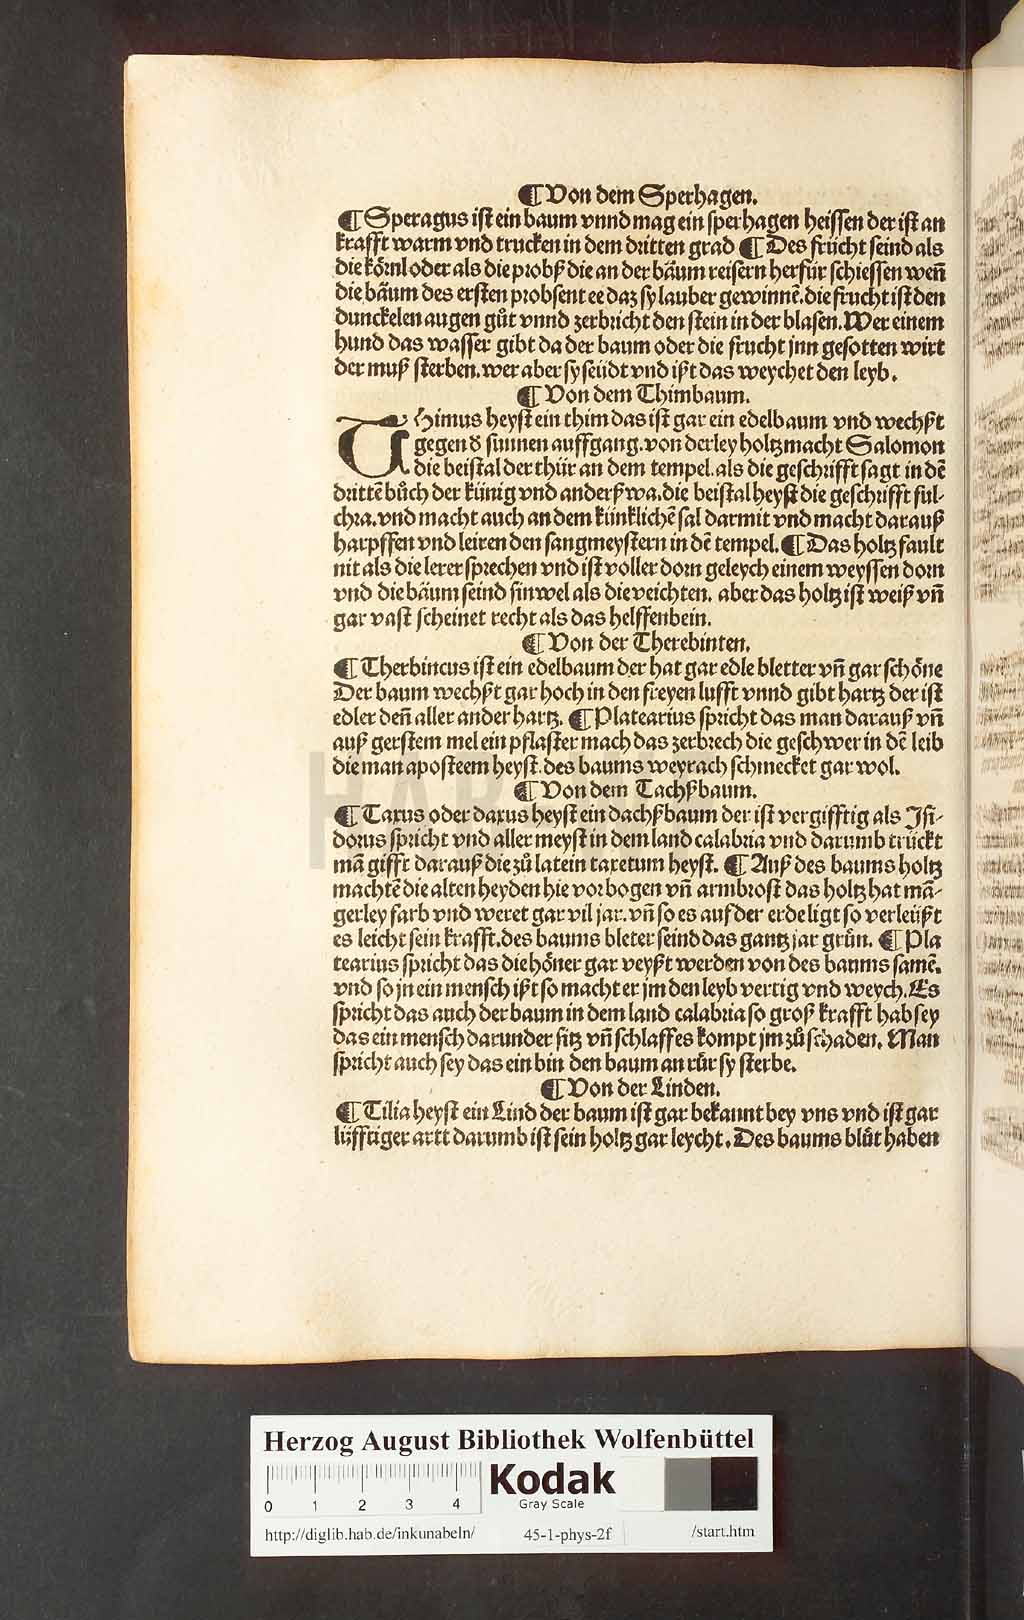 ¶ Von dem Sperhagen.
¶ Speragus ist ein baum vnnd mag ein sperhagen heissen der ist an
krafft warm vnd trucken in dem dritten grad ¶ Des frücht seind als
die kôrnl oder als die probß die an der bäum reisern herfür schiessen weñ
die bäum des ersten probsent ee daz sy lauber gewinnē. die frucht ist den
dunckelen augen gůt vnnd zerbricht den stein in der blasen. Wer einem
hund das wasser gibt da der baum oder die frucht jnn gesotten wirt
der muß sterben. wer aber sy seüdt vnd ißt das weychet den leyb.
¶ Von dem Thimbaum.
THimus heyst ein thim das ist gar ein edelbaum vnd wechßt
gegen d̕ sunnen auffgang. von der ley holtz macht Salomon
die beistal der thür an dem tempel. als die geschrifft sagt in dē
drittē bůch der künig vnd anderßwa. die beistal heyst die geschrifft ful-
chra. vnd macht auch an dem künklichē sal darmit vnd macht darauß
harpffen vnd leiren den sangmeystern in dē tempel. ¶ Das holtz fault
nit als die lerer sprechen vnd ist voller dorn geleych einem weyssen dorn
vnd die bäum seind sinwel als die veichten. aber das holtz ist weiß vñ
gar vast scheinet recht als das helffenbein.
¶ Von der Therebinten.
¶ Therbincus ist ein edelbaum der hat gar edle bletter vñ gar schône
Der baum wechßt gar hoch in den freyen lufft vnnd gibt hartz der ist
edler deñ aller ander hartz. ¶ Platearius spricht das man darauß vñ
auß gerstem mel ein pflaster mach das zerbrech die geschwer in dē leib
die man aposteem heyst. des baums weyrach schmecket gar wol.
¶ Von dem Tachßbaum.
¶ Taxus oder daxus heyst ein dachßbaum der ist vergifftig als Jsi-
dorus spricht vnd aller meyst in dem land calabria vnd darumb trückt
mā gifft darauß die zů latein taxetum heyst. ¶ Auß des baums holtz
machtē die alten heyden hie vor bogen vñ armbrost das holtz hat mā-
gerley farb vnd weret gar vil jar. vñ so es auf der erde ligt so verleüßt
es leicht sein krafft. des baums bleter seind das gantz jar grün. ¶ Pla
tearius spricht das die hôner gar veyßt werden von des baums samē.
vnd so jn ein mensch ißt so macht er jm den leyb vertig vnd weych. Es
spricht das auch der baum in dem land calabria so groß krafft hab sey
das ein mensch darunder sitz vñ schlaff es kompt jm zů schaden. Man
spricht auch sey das ein bin den baum an rür sy sterbe.
¶ Von der Linden.
¶ Tilia heyst ein Lind der baum ist gar bekannt bey vns vnd ist gar
lüfftiger artt darumb ist sein holtz gar leycht. Des baums blüt haben
HAB
Herzog August Bibliothek Wolfenbüttel
0 1 2 3 4
Kodak
Gray Scale
http://diglib.hab.de/inkunabeln/ 45-1-phys-2f /start.htm